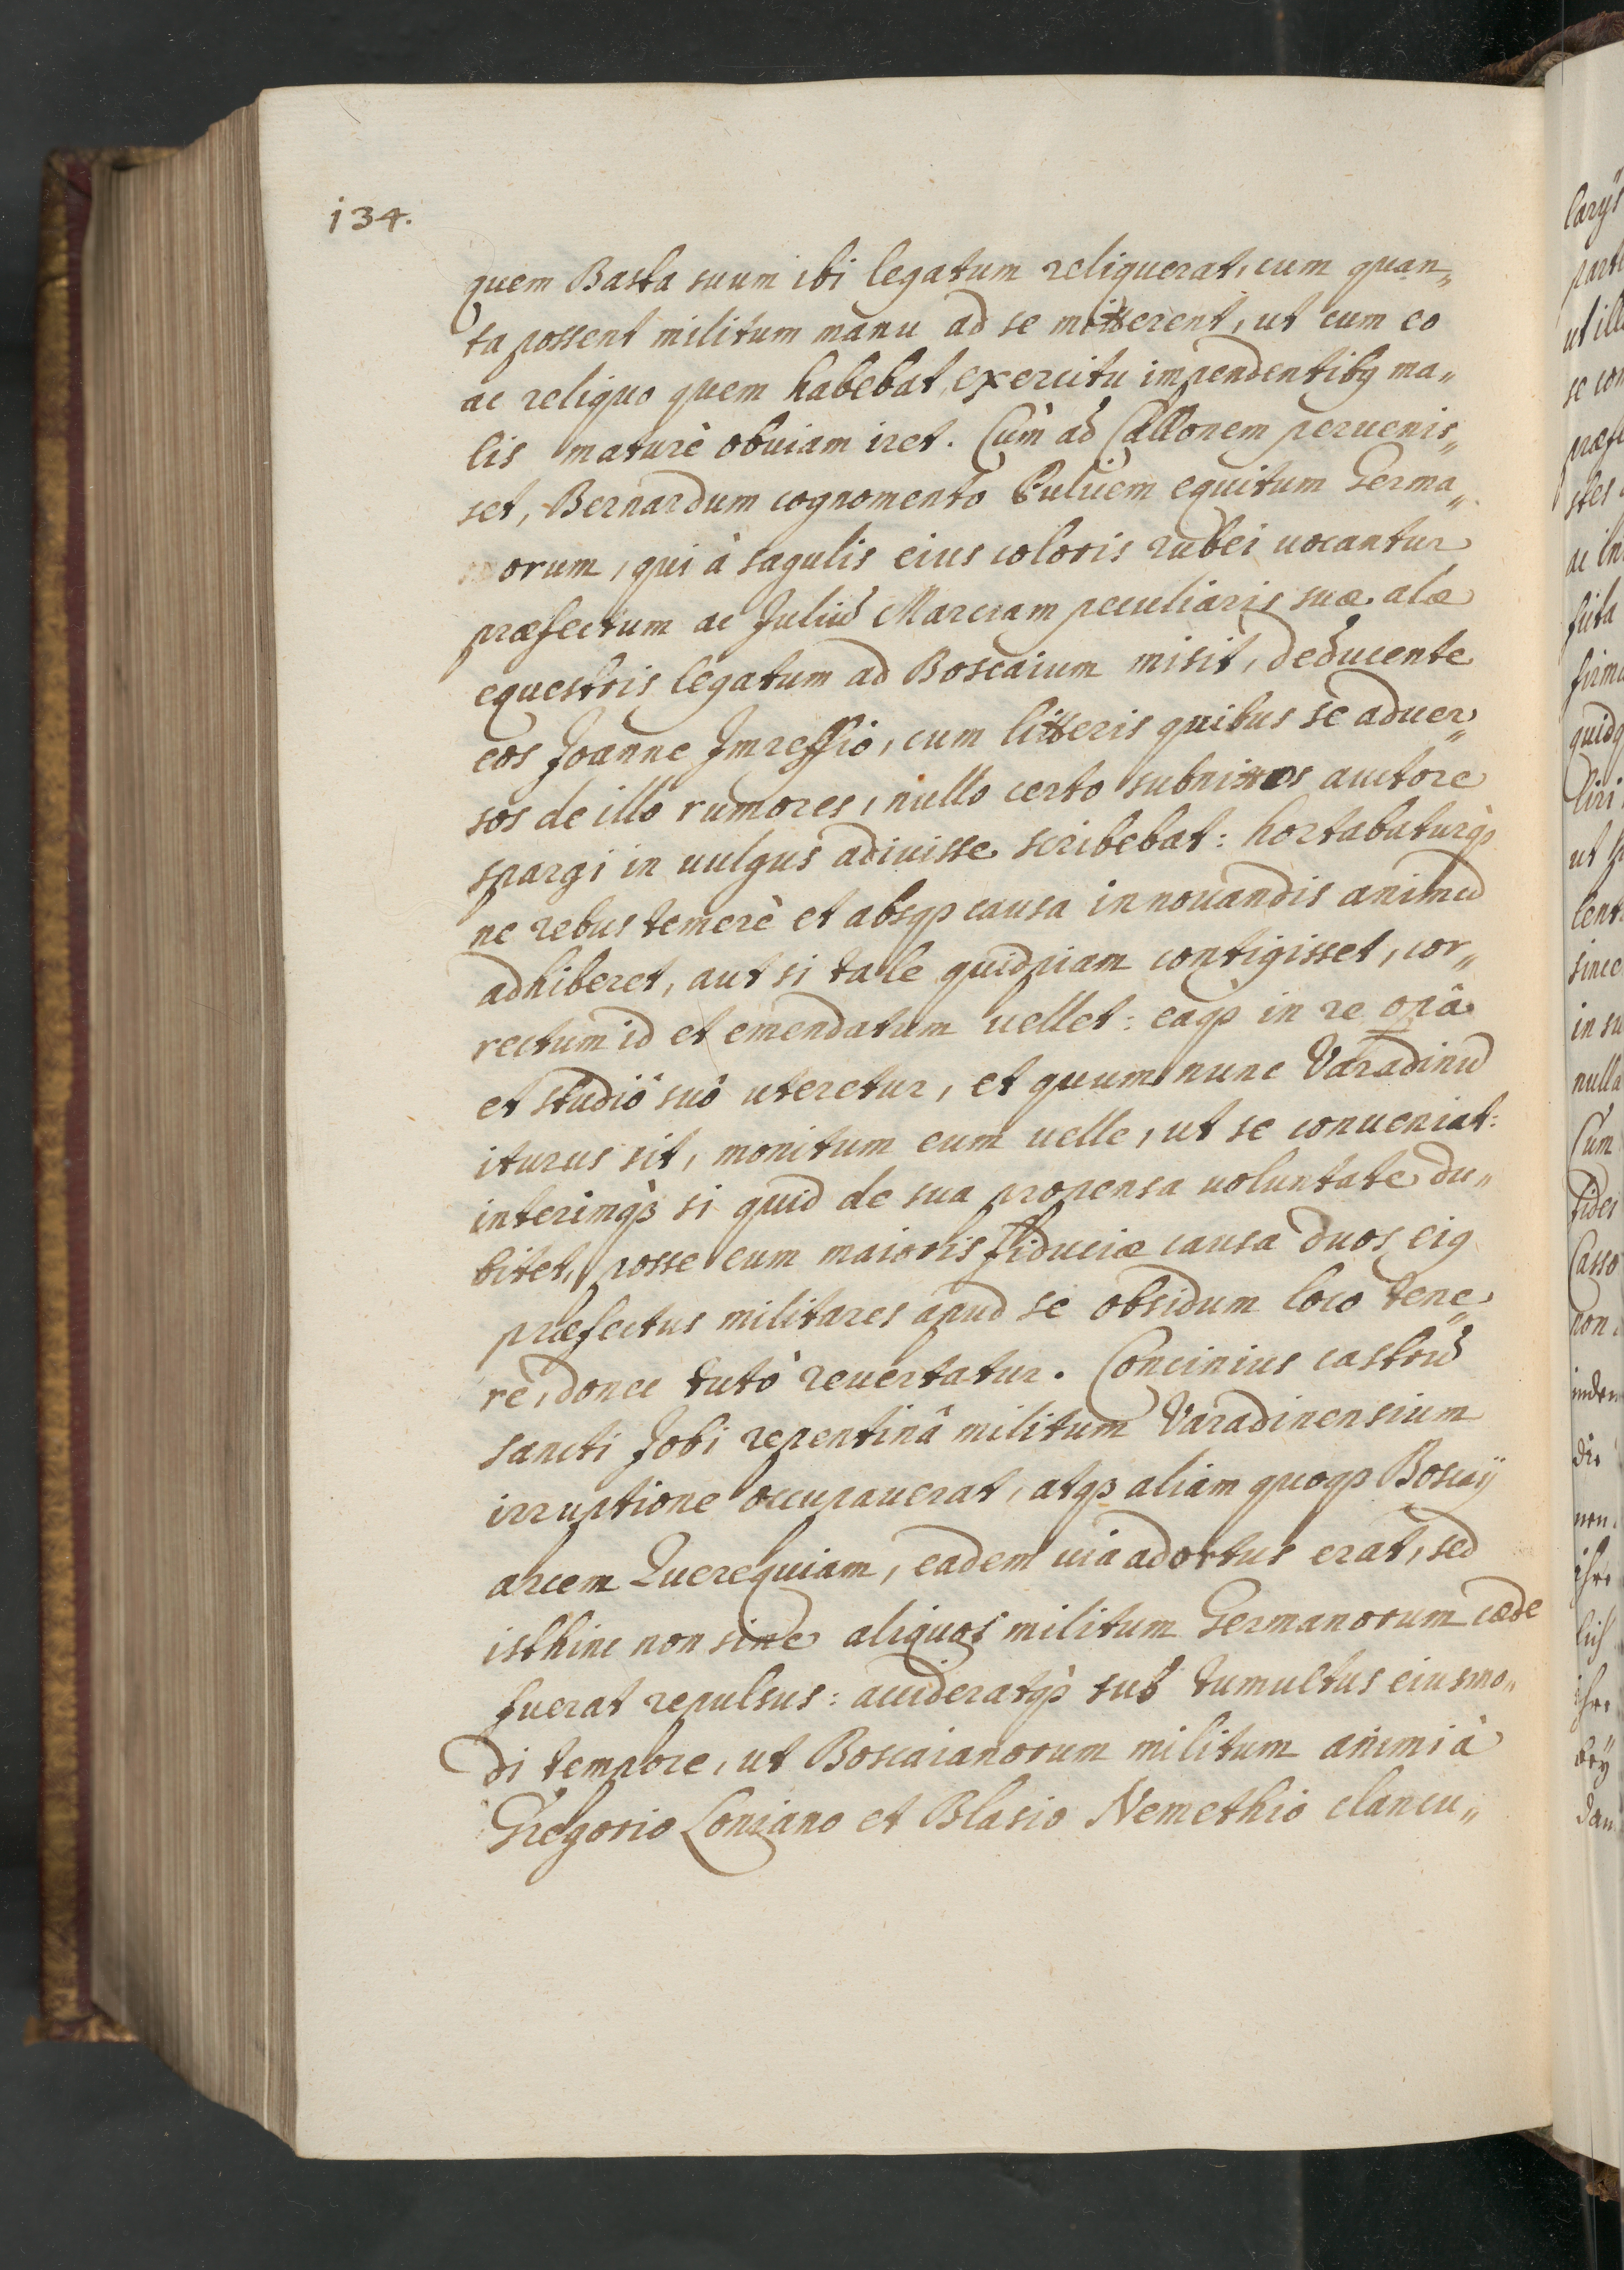 134.
quem Basta suum ibi legatum reliquerat, cum quan„
ta possent militum manu ad se mitterent, ut cum eo
ac reliquo quem habebat, exercitu impendentibq ma„
lis maturè obuiam iret. Cùm ad Callonem peruenis„
set, Bernardum cognomento Puluem equitum Germa„
orum, qui à sagulis eius coloris rubei uocantur
præfectum ac Juliũ Marciam peculiaris suæ alæ
equestris legatum ad Boscaium misit, deducente
eos Joanne Imreffio, cum litteris quibus se aduer„
sos de illo rumores, nullo certo subnixos auctore
spargi in uulgus adiuisse scribebat: hortabaturqꝫ
ne rebus temerè et absqꝫ causa innouandis animũ
adhiberet, aut si tale quidpiam contigisset, cor„
rectum id et emendatum uellet: eaqꝫ in re opâ
et studiô suô uteretur, et quum nunc Varadinũ
iturus sit, monitum eum uelle, ut se conueniat:
interimqꝫ si quid de sua propensa uoluntate du„
bitet, posse eum maioris fiduciæ causa duos eiq
præfectus militares apud se obsidum loco tene„
re, donec tutò reuertatur. Concinius castrũ
sancti Jobi repentinâ militum Varadinensium
irruptione occupauerat, atqꝫ aliam quoqꝫ Boscaÿ
arcem Querequiam, eadem uia adortus erat, sed
isthinc non sine aliquot militum Germanorum cæde
fuerat repulsus: accideratqꝫ sub tumultus eiusmo„
di tempore, ut Boscaianorum militum animi à
Gregorio Loniano et Blasio Nemethio clancu„